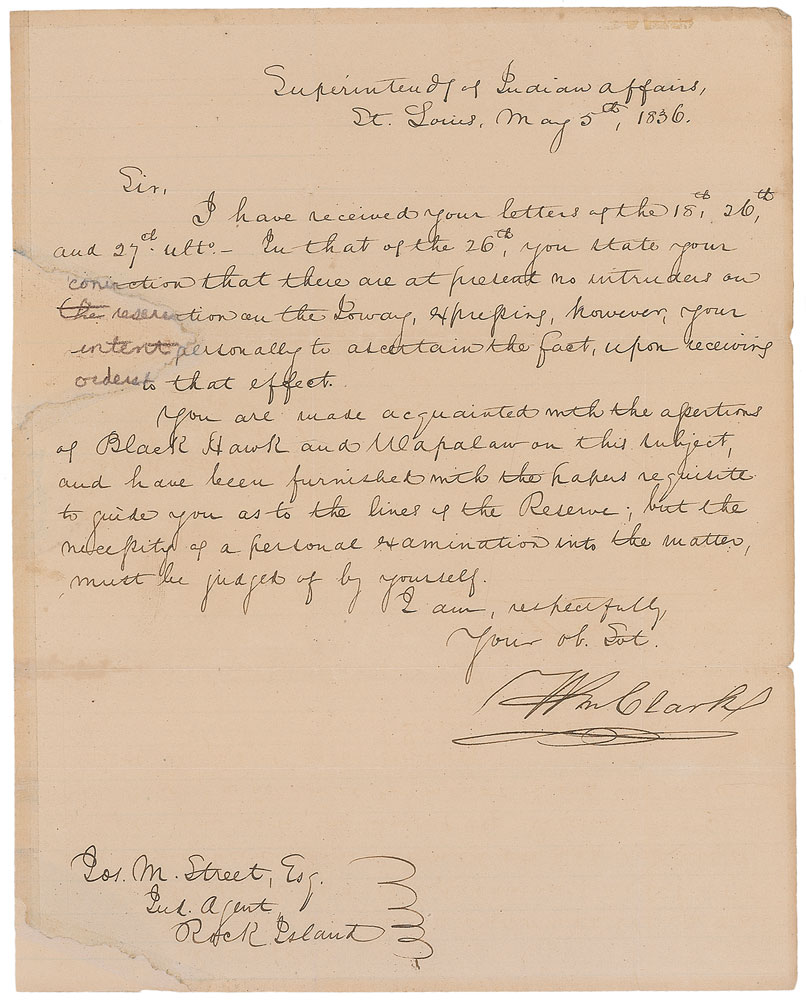 Superintendy of Indian affairs,
St. Louis, May 5th, 1836.
Sir,
I have received your letters of the 18th, 26th,
and 27th ulto. – In that of the 26th, you state your
conviction that there are at present no intruders on
the reservation on the Ioway, expressing, however, your
intent personally to ascertain the fact, upon receiving
orders to that effect.
You are made acquainted with the assertions
of Black Hawk and Wapalaw on this subject,
and have been furnished with the papers requisite
to guide you as to the lines of the Reserve; but the
necessity of a personal examination into the matter,
must be judged of by yourself.
I am, respectfully,
Your ob. Svt.
Wm Clark
Jos. M. Street, Esq.
Ind. Agent
Rock Island